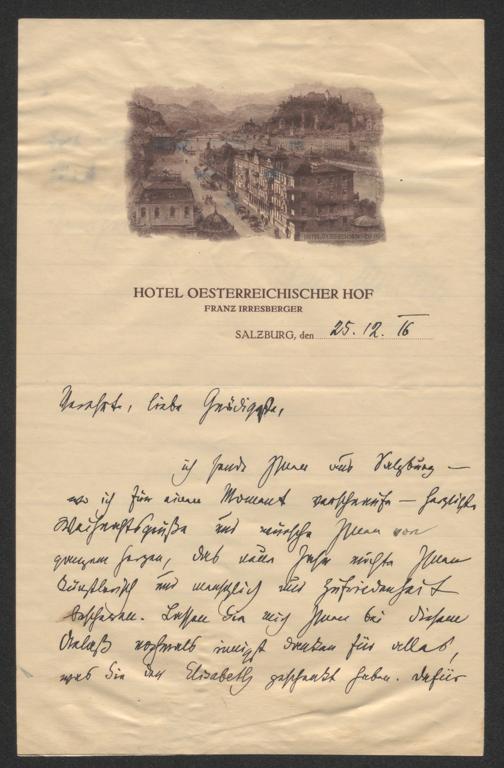 HOTEL OESTERREICHISCHER HOF
FRANZ IRRESBERGER
SALZBURG, den 25. 12. 16
Verehrte, liebe Gnädigste,
ich sende Ihnen aus Salzburg —
wo ich für einen Moment verschnaufe — herzlichste
Weihnachtsgrüße und wünsche Ihnen von
ganzem Herzen, das neue Jahr möchte Ihnen
künstlerisch und menschlich nur Zufriedenheit
bescheren. Lassen Sie mich Ihnen bei diesem
Anlaß nochmals innigst danken für alles,
was Sie der Elisabeth geschenkt haben. Dafür